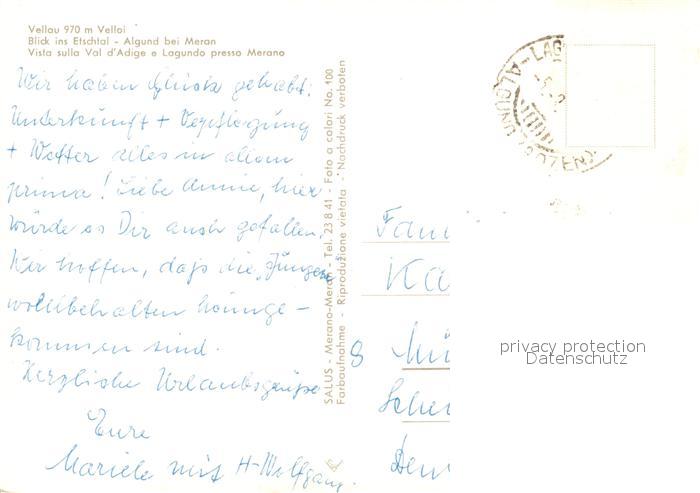 Vellau 970 m Velloi
Blick ins Etschtal - Algund bei Meran
Vista sulla Val d'Adige e Lagundo presso Merano
Wir haben Glück gehabt:
Unterkunft + Verpflegung
+ Wetter alles in allem
prima! Liebe Annie, hier
würde es Dir auch gefallen.
Wir hoffen, daß die "Jüngere"
wohlbehalten heimge-
kommen sind.
Herzliche Urlaubsgrüße
Eure
Mariele mit H-Wolfgang.
SALUS - Merano-Meran - Tel. 23 8 41 - Foto a colori No. 100
Farbaufnahme - Riproduzione vietata - Nachdruck verboten
ALGUND - LAG
(BOZEN)
Fam
Ka
8 Mü
privacy protection
Datenschutz